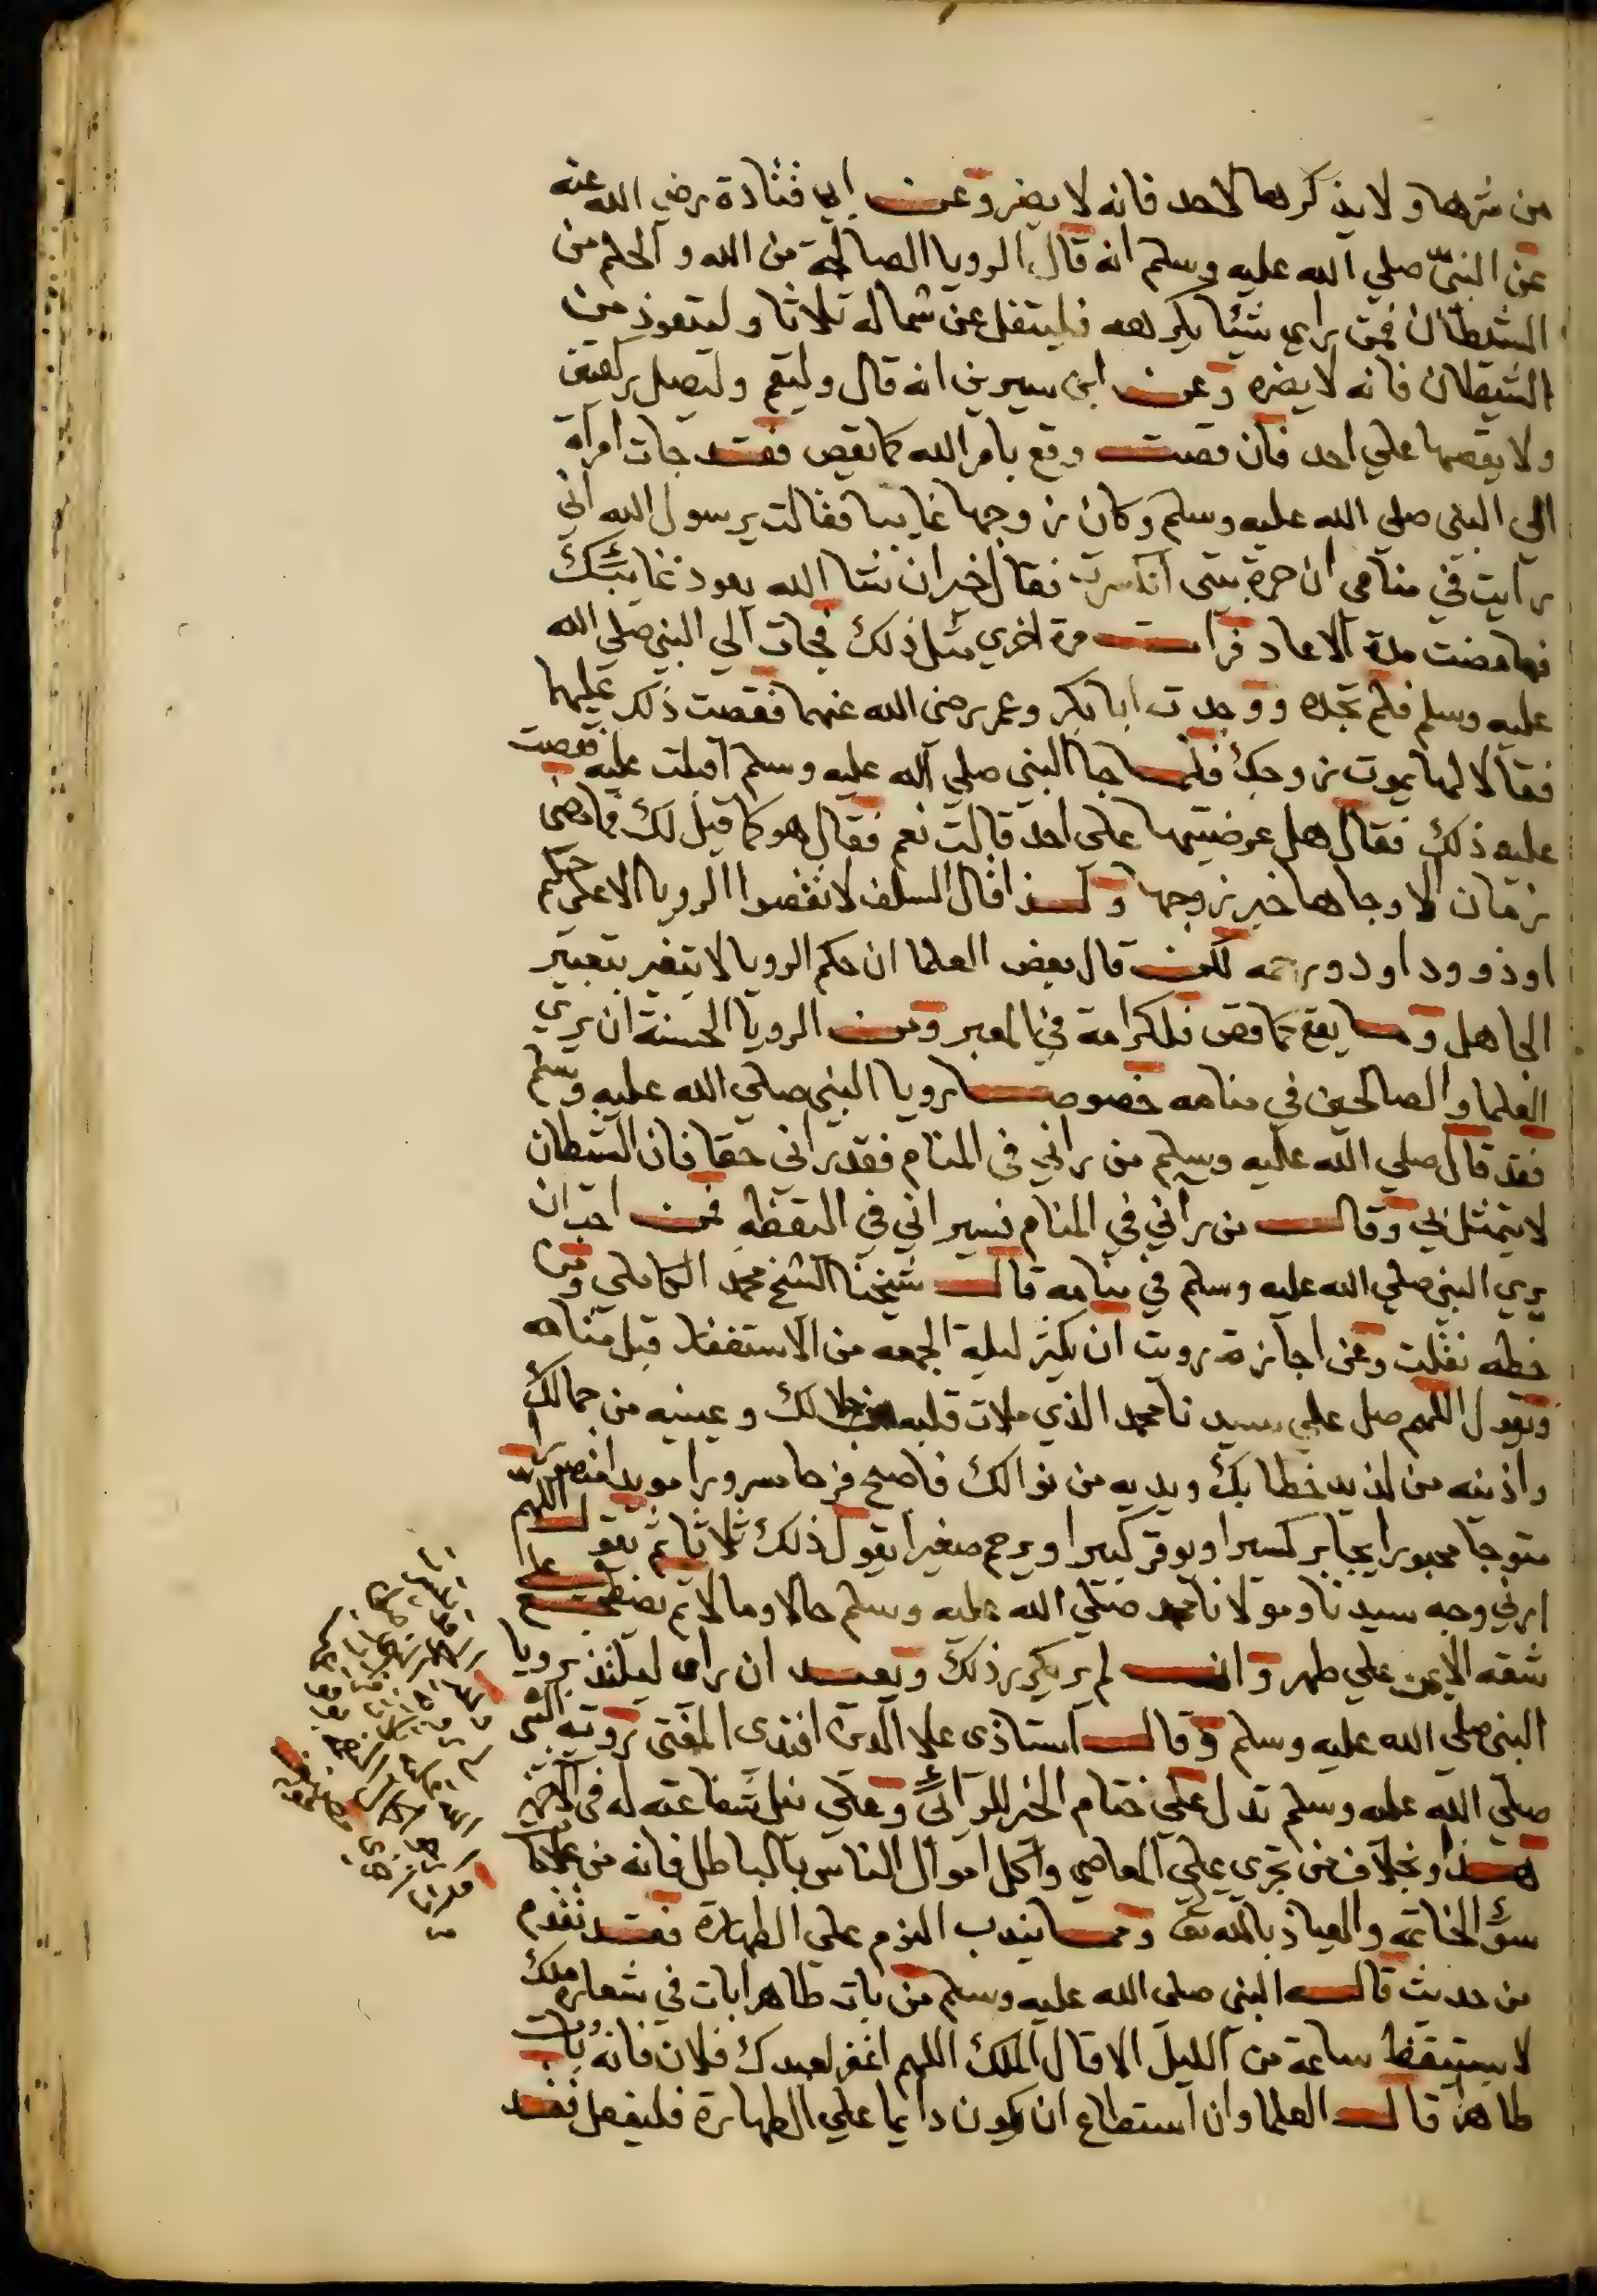 من شرها ولا يذكرها لاحد فانه لا يضر وعن ابي قتادة رضي الله عنه
عن النبي صلي الله عليه وسلم انه قال الرويا الصالحة من الله والحلم من
الشيطان فمن راي شيئا يكرهه فليتفل عن شماله ثلاثا وليتعوذ من
الشيطان فانه لا يضره وعن ابن سيرين انه قال وليقم وليصل ركعتين
ولا يقصها علي احد فان قصت وقع بامر الله كما تقص فقد جات امراة
الي النبي صلي الله عليه وسلم وكان زوجها غايبا فقالت يرسول الله اني
رايت في منامي ان جرة بيتي انكسرت فقال خير ان شا الله يعود غايبك
فما مضت مدة الا عاد فرات مرة اخري مثل ذلك فجات الي النبي صلي الله
عليه وسلم فلم تجده ووجدت ابا بكر وعمر رضي الله عنهما فقصت ذلك عليهما
فقالا لها يموت زوجك فلما جا النبي صلي الله عليه وسلم اقبلت عليه فقصت
عليه ذلك فقال هل عرضتيها علي احد قالت نعم فقال هو كما قيل لك فما مضي
زمان الا وجاها خبر زوجها ولذا قال السلف لا تقصوا الرويا الا علي حكيم
او ذو ود او ذو رحمه لكن قال بعض العلما ان حكم الرويا لا يتغير بتعبير
الجاهل وما يقع كما قص فلكرامة في المعبر ومن الرويا الحسنة ان يري
العلما والصالحين في منامه خصوصا رويا النبي صلي الله عليه وسلم
فقد قال صلي الله عليه وسلم من راني في المنام فقد راني حقا فان الشيطان
لا يتمثل بي وقال من راني في المنام فسيراني في اليقظه فمن احب ان
يري النبي صلي الله عليه وسلم في منامه قال شيخنا الشيخ محمد الكاملي ومن
خطه نقلت وعن اجازته رويت ان يكثر ليلة الجمعه من الاستغفار قبل منامه
ويقول اللهم صل علي سيدنا محمد الذي ملات قلبه من جلالك وعينيه من جمالك
واذنيه من لذيذ خطابك ويديه من نوالك فاصبح فرحا مسرورا مويدا منصورا
متوجا محبورا يجابر كسيرا ويوقر كبيرا ويرحم صغيرا يقول ذلك ثلاثا ثم يقول اللهم
ارني وجه سيدنا ومولانا محمد صلي الله عليه وسلم حالا ومالا ثم يضطجع علي
شقه الايمن علي طهر وان لم ير يكرر ذلك وبعد ان راي ليلتذ برويا
النبي صلي الله عليه وسلم وقال استاذي علا الدين افندي المفتي رويته النبي
صلي الله عليه وسلم تدل علي ختام الخير للرائي وعلي نيل شفاعته له في الاخرة
هذا وبخلاف من تجري علي المعاصي واكل اموال الناس بالباطل فانه من علامات
سؤ الخاتمه والعياذ بالله تع ومما يندب النوم علي الطهارة فقد تقدم
من حديث قال النبي صلي الله عليه وسلم من بات طاهرا بات في شعاره ملك
لا يستيقظ ساعة من الليل الا قال الملك اللهم اغفر لعبدك فلان فانه بات
طاهرا قال العلما وان استطاع ان يكون دايما علي الطهارة فليفعل فقد